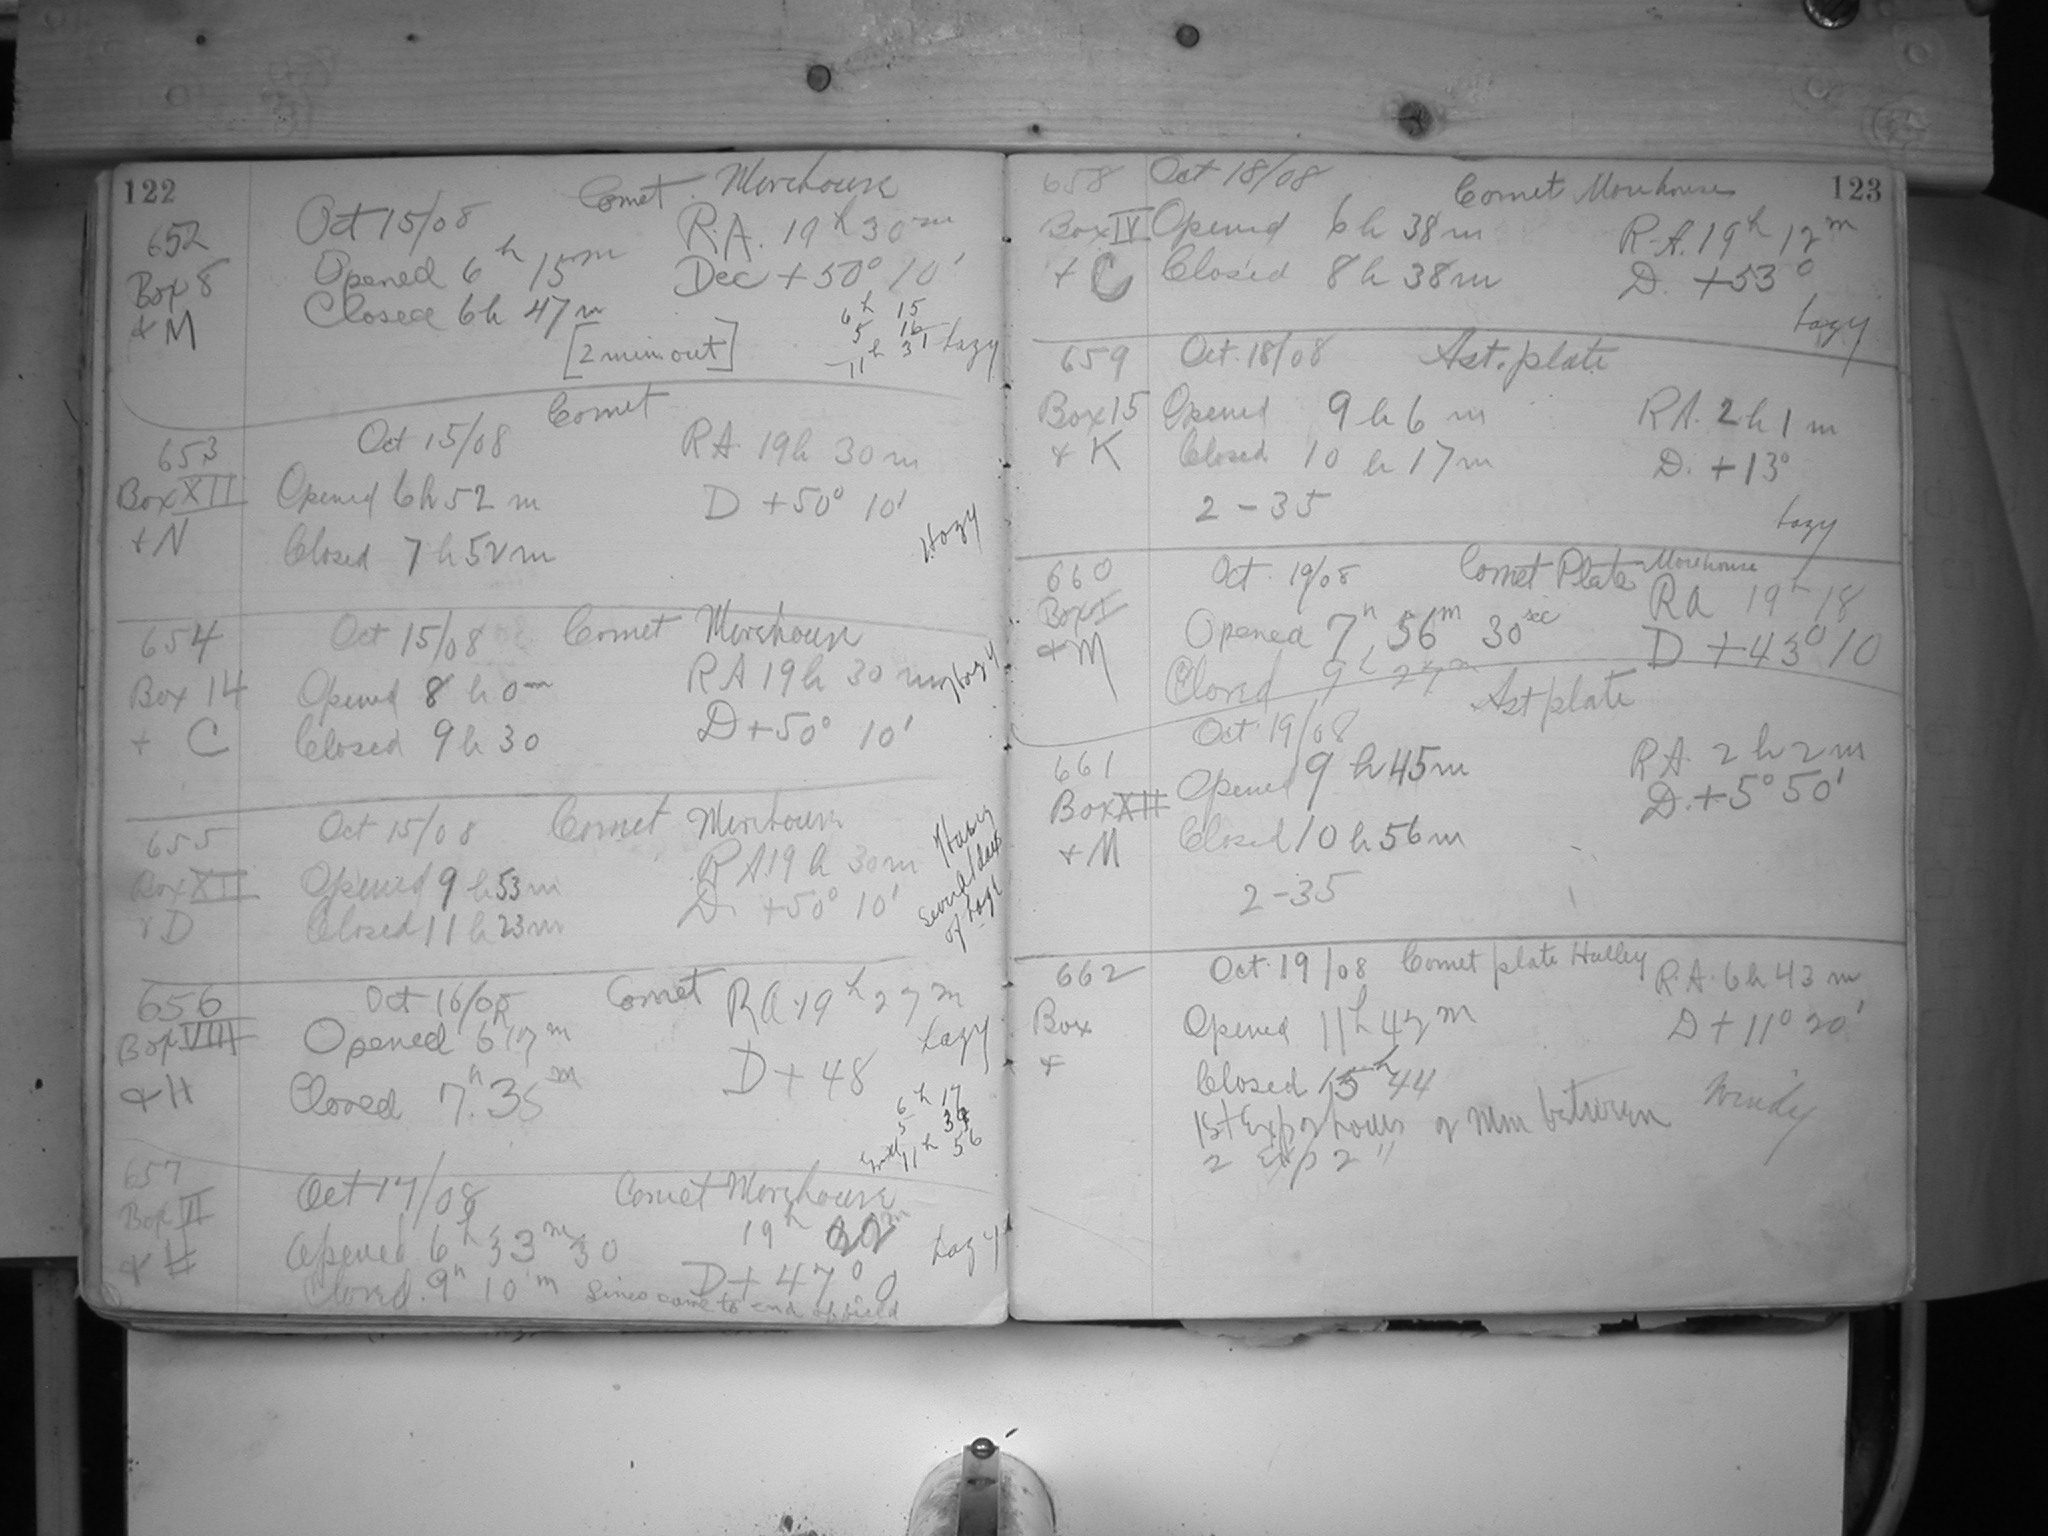 122
652
Box 8
+ M
Oct 15/08 Comet Morehouse
Opened 6h 15m R.A. 19h 30m
Closed 6h 47m Dec +50° 10'
[2 min out]
6h 15
5 16
11h 31
Hazy
653
Box XII
+ N
Comet
Oct 15/08 RA. 19h 30m
Opened 6h 52m D +50° 10'
Closed 7h 52m
Hazy
654
Box 14
+ C
Oct 15/08 Comet Morehouse
Opened 8h 0m RA 19h 30m
Closed 9h 30 D +50° 10'
Hazy
655
Box XII
+ D
Oct 15/08 Comet Morehouse
Opened 9h 53m RA 19h 30m
Closed 11h 23m D. +50° 10'
656
Box VIII
+ H
Oct 16/08 Comet RA 19h 27m
Opened 6 17m Hazy
Closed 7h. 35m D + 48
6h 17
11h 56
657
Box VI
+ H
Oct 17/08 Comet Morehouse
Opened 6h 33m 30 19h 22m
Closed. 9h 10m D + 47° 0
Lines come to end of field
Hazy
123
658
Box IV
+ C
Oct 18/08 Comet Morehouse
Opened 6h 38m R.A. 19h 12m
Closed 8h 38m D. +53°
Hazy
659
Box 15
+ K
Oct. 18/08 Ast. plate
Opened 9h 6m RA. 2h 1m
Closed 10h 17m D. +13°
2 - 35
Hazy
660
Box I
+ M
Oct. 19/08 Comet Plate Morehouse
Opened 7h 56m 30sec RA 19h 18
Closed 9h 27m D +43° 10
661
Box XII
+ M
Ast plate
Oct. 19/08
Opened 9h 45m RA. 2h 2m
Closed 10h 56m D. +5° 50'
2 - 35
662
Box
+
Oct. 19/08 Comet plate Halley R.A. 6h 43m
Opened 11h 42m D +11° 20'
Closed 15h 44
1st Exp 2 hours 2 min between
2 Exp 2 "
Windy